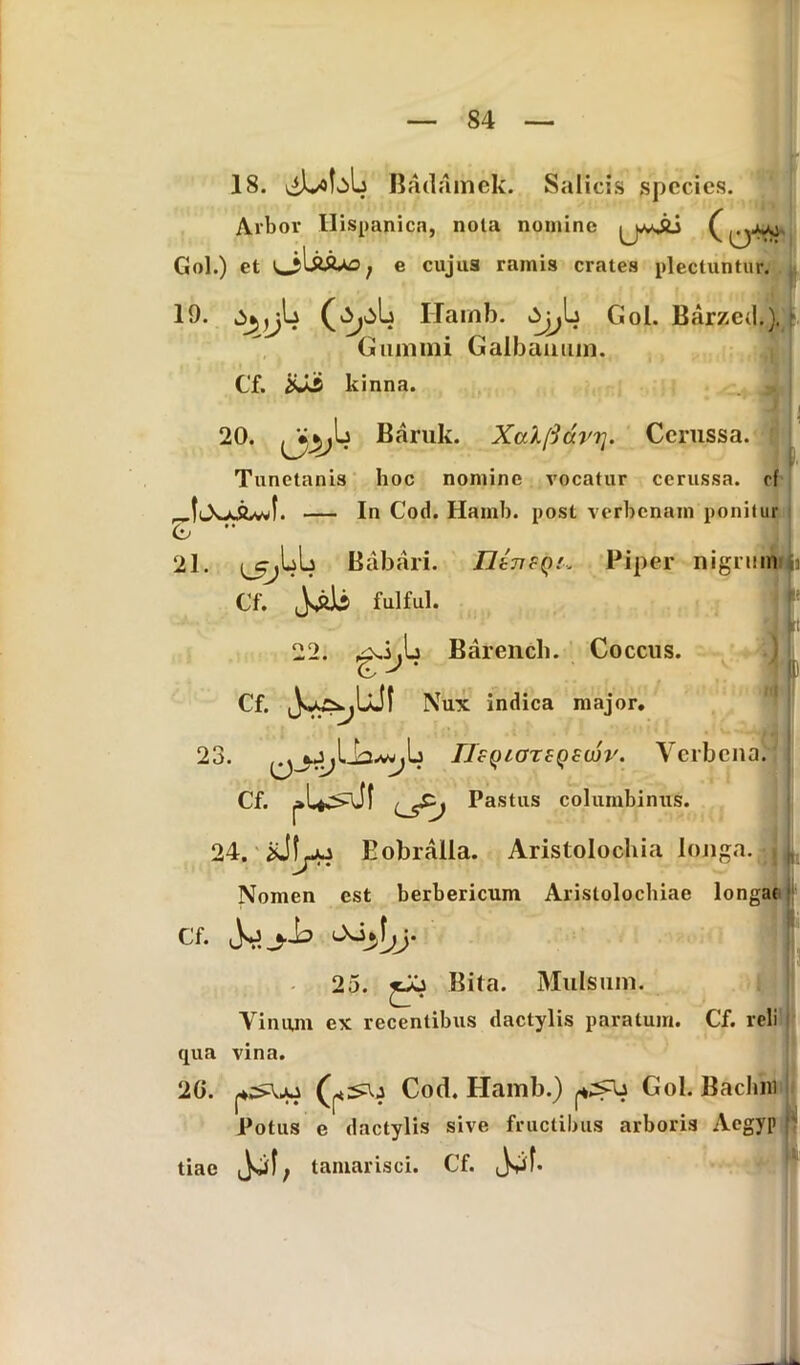 — 84 —
18. بادامك Bâdâmek. Salicis species.
Arbor Hispanica, nota nomine
Gol.) et صفصاف, e cujus ramis crates plectuntur.
19. بارزد Hamb. بارزد Gol. Bârzed.).
Gummi Galbanum.
Cf. قنة kinna.
20. باروق Bâruk. Χαλβάνη. Cerussa.
Tunetanis hoc nomine vocatur cerussa. cf
اسفيداج. — In Cod. Hamb. post verbenam ponitur
21. بابارى Bâbâri. Πέπερι. Piper nigrum
Cf. فلفل fulful.
22. بارنج Bârench. Coccus.
Cf. النارجيل Nux indica major.
23. بارسطاريون Περιστερεών. Verbena.
Cf. رعى الحمام Pastus columbinus.
24. Bobrâlla. Aristolochia longa.
Nomen est berbericum Aristolochiae longae
Cf. زراوند طويل.
25. بتع Bita. Mulsum.
Vinum ex recentibus dactylis paratum. Cf. reli
qua vina.
26. Cod. Hamb.) Gol. Bachm
Potus e dactylis sive fructibus arboris Aegyp
tiae اثل, tamarisci. Cf. اثل.